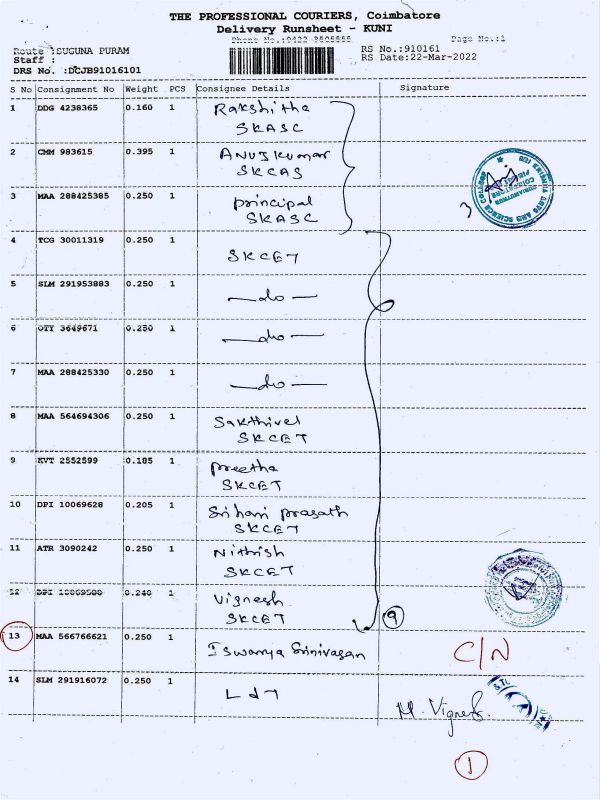 THE PROFESSIONAL COURIERS, Coimbatore
Delivery Runsheet - KUNI
Page No.:1
Route :SUGUNA PURAM
RS No.:910161
Staff :
RS Date:22-Mar-2022
DRS No. :DCJB91016101
S No Consignment No Weight PCS Consignee Details Signature
1 DDG 4238365 0.160 1 Rakshitha
SKASC
2 CMM 983615 0.395 1 Anujkumar
SKCAS
3 MAA 288425385 0.250 1 principal
SKASC
4 TCG 30011319 0.250 1 SKCET
5 SLM 291953883 0.250 1 —do—
6 OTY 3649671 0.250 1 —do—
7 MAA 288425330 0.250 1 —do—
8 MAA 564694306 0.250 1 Sakthivel
SKCET
9 KVT 2552599 0.185 1 preetha
SKCET
10 DPI 10069628 0.205 1 Srihari prasath
SKCET
11 ATR 3090242 0.250 1 Nithish
SKCET
12 0.240 1 Vignesh
SKCET
9
13 MAA 566766621 0.250 1 Iswarya Srinivasan C/N
14 SLM 291916072 0.250 1 L&T
M. Vignesh
1